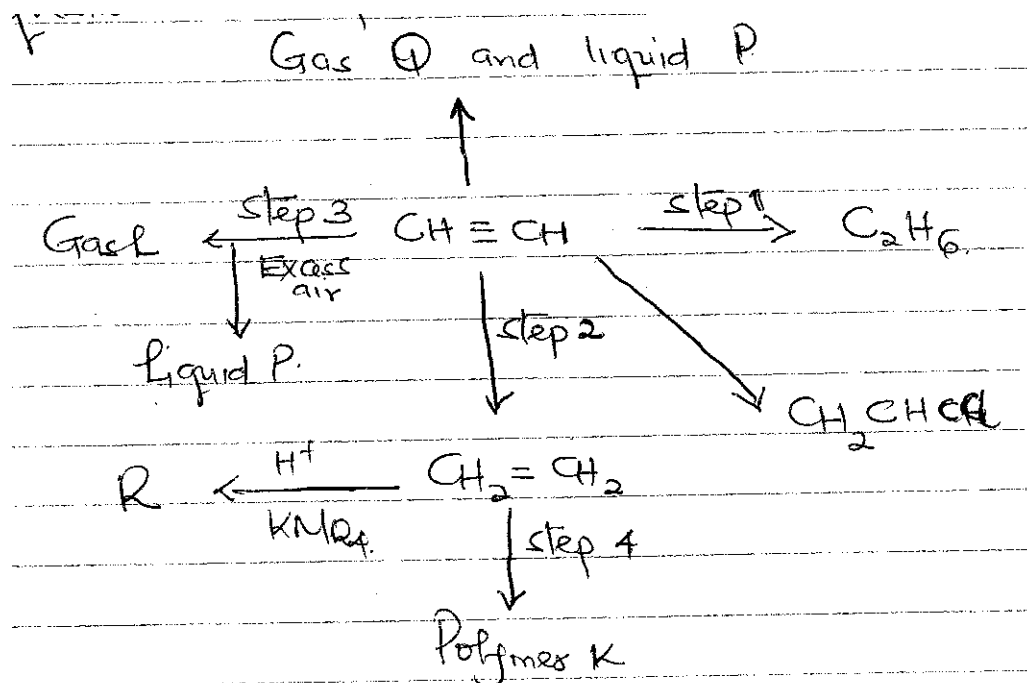 Gas Q and liquid P
Gas L
step 3
Excess
air
CH ≡ CH
step 1
C₂H₆.
Liquid P.
step 2
CH₂CHCl
R
H⁺
KMnO₄.
CH₂ = CH₂
step 4
Polymer K